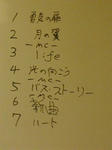 1
2 月の翼
-mc-
3 life
-mc-
4 光の向こう
-mc-
5 バス・ストーリー
-mc-
6 新曲
7 ハート